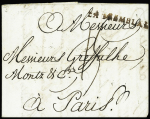 LA TREMBLADE
A Messieurs
Messieurs Greffulhe
Montz & Cie
à Paris